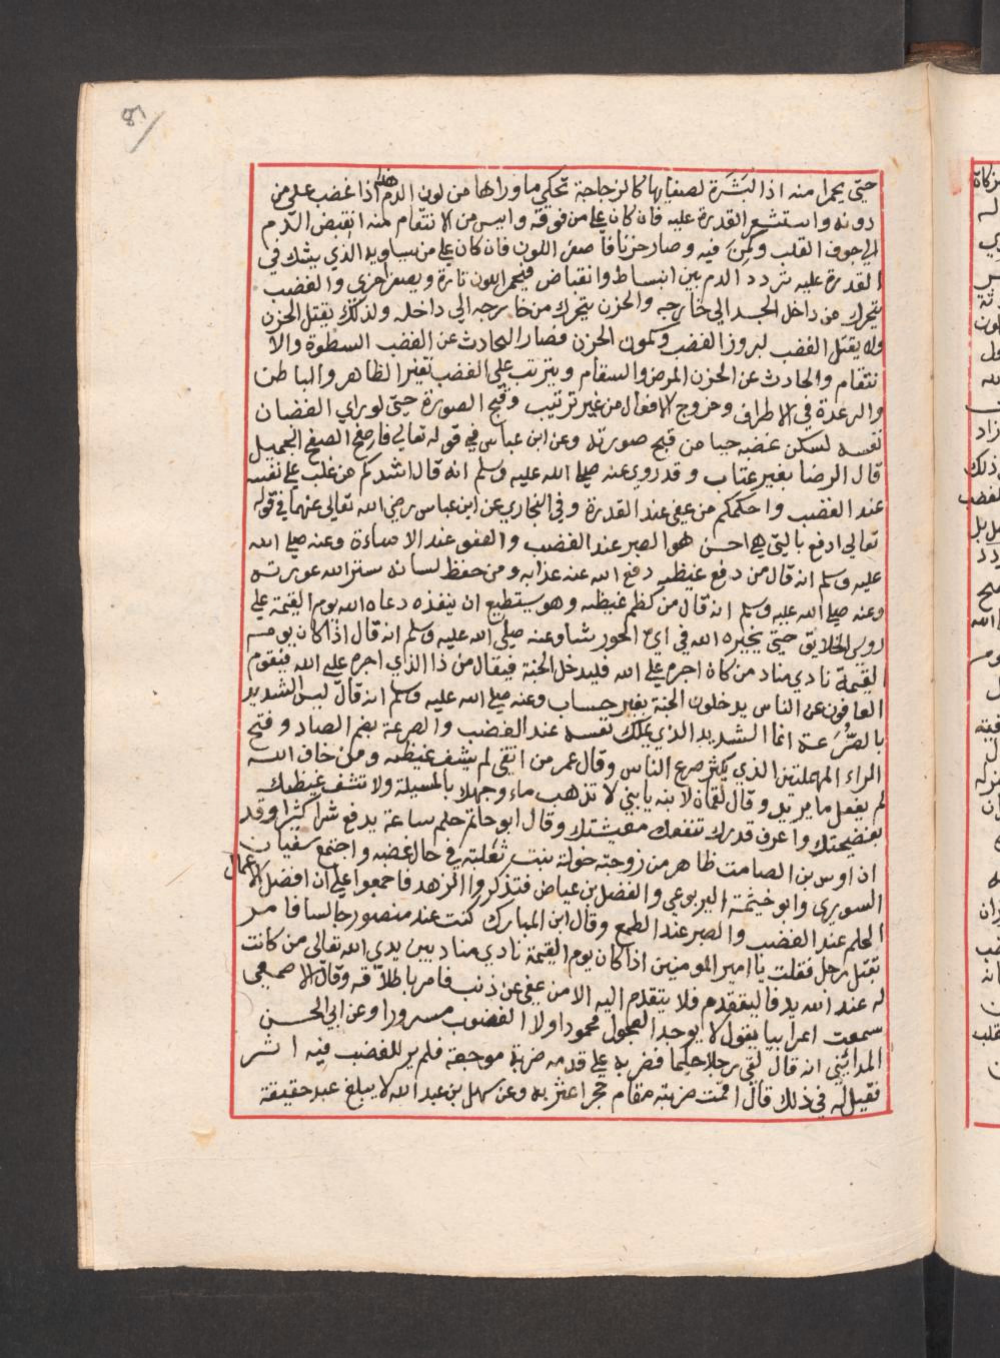 حتى يحمرا منه اذ البَشَرَة لصفايها كالزجاجة تحكي ما وراها من لون الدم هذا اذا غضب على من
دونه واستشعر القدرة عليه فان كان على من فوقه وايس من الانتقام منه انقبض الدم
الى جوف القلب وكمن فيه وصار حزنا فاصفر اللون فان كان على من يساويه الذي يشك في
القدرة عليه تردد الدم بين انبساط وانقباض فيحمر اللون تارة ويصفر اخرى والغضب
يتحرك من داخل الجسد الى خارجه والحزن يتحرك من خارجه الى داخله ولذلك يقتل الحزن
ولا يقتل الغضب لبروز الغضب وكمون الحزن فصار الحادث عن الغضب السطوة والا
نتقام والحادث عن الحزن المرض والسقام ويترتب على الغضب تغير الظاهر والباطن
والرعدة في الاطراف وخروج الافعال من غير ترتيب وقبح الصورة حتى لو راى الغضبان
نفسه لسكن غضبه حيا من قبح صورته وعن ابن عباس في قوله تعالى فاصفح الصفح الجميل
قال الرضا بغير عتاب وقد روي عنه صلى الله عليه وسلم انه قال اشدكم من غلب على نفسه
عند الغضب واحكمكم من عفى عند القدرة وفي البخاري عن ابن عباس رضي الله تعالى عنهما في قوله
تعالى ادفع بالتي هي احسن هو الصبر عند الغضب والعفو عند الاساءة وعنه صلى الله
عليه وسلم انه قال من دفع غيظه دفع الله عنه عذابه ومن حفظ لسانه ستر الله عورته
وعنه صلى الله عليه وسلم انه قال من كظم غيظه وهو يستطيع ان ينفذه دعاه الله يوم القيمة على
روس الخلايق حتى يخيره الله في اي الحور شا وعنه صلى الله عليه وسلم انه قال اذا كان يوم
القيمة نادى مناد من كان اجره على الله فليدخل الجنة فيقال من ذا الذي اجره على الله فيقوم
العافون عن الناس يدخلون الجنة بغير حساب وعنه صلى الله عليه وسلم انه قال ليس الشديد
بالصُّرَعة انما الشديد الذي يملك نفسه عند الغضب والصرعة بضم الصاد وفتح
الراء المهملتين الذي يكثر صرع الناس وقال عمر من اتقى لم يشف غيظه ومن خاف الله
لم يفعل ما يريد وقال لقمان لابنه يابني لا تذهب ماء وجهك بالمسيلة ولا تشف غيظك
بفضيحتك واعرف قدرك تنفعك معيشتك وقال ابو حاتم حلم ساعة يدفع شرا كثيرا وقد
ان اوس بن الصامت ظاهر من زوجته خولة بنت ثعلبة في حال غضبه واجتمع سفيان
السوري وابو خيثمة اليربوعي والفضل بن عياض فتذكروا الزهد فاجمعوا على ان افضل الاعمال
الحلم عند الغضب والصبر عند الطمع وقال ابن المبارك كنت عند منصور جالسا فامر
بقتل رجل فقلت يا امير المومنين اذا كان يوم القيمة نادى مناد بين يدي الله تعالى من كانت
له عند الله يد فاليتقدم فلا يتقدم اليه الا من عفى عن ذنب فامر باطلاقه وقال الاصمعي
سمعت اعرابيا يقول لا يوجد العجول محمودا ولا الغضوب مسرورا وعن ابي الحسن
المدائني انه قال لقى رجل حكيما فضربه على قدمه ضربة موجعة فلم ير للغضب فيه اثر
فقيل له في ذلك قال اقمت ضربته مقام حجر اعثر به وعن سهل بن عبد الله لا يبلغ عبد حقيقة